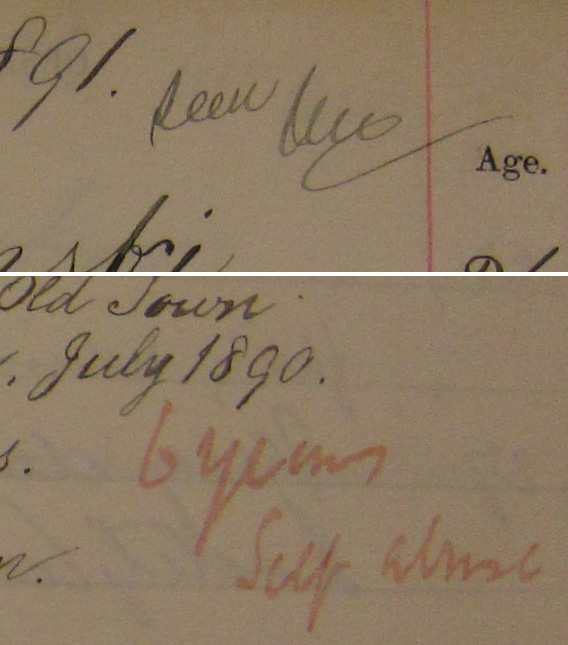 891.
seen
Age.
Old Town
July 1890.
s.
6 years
n.
Self abuse